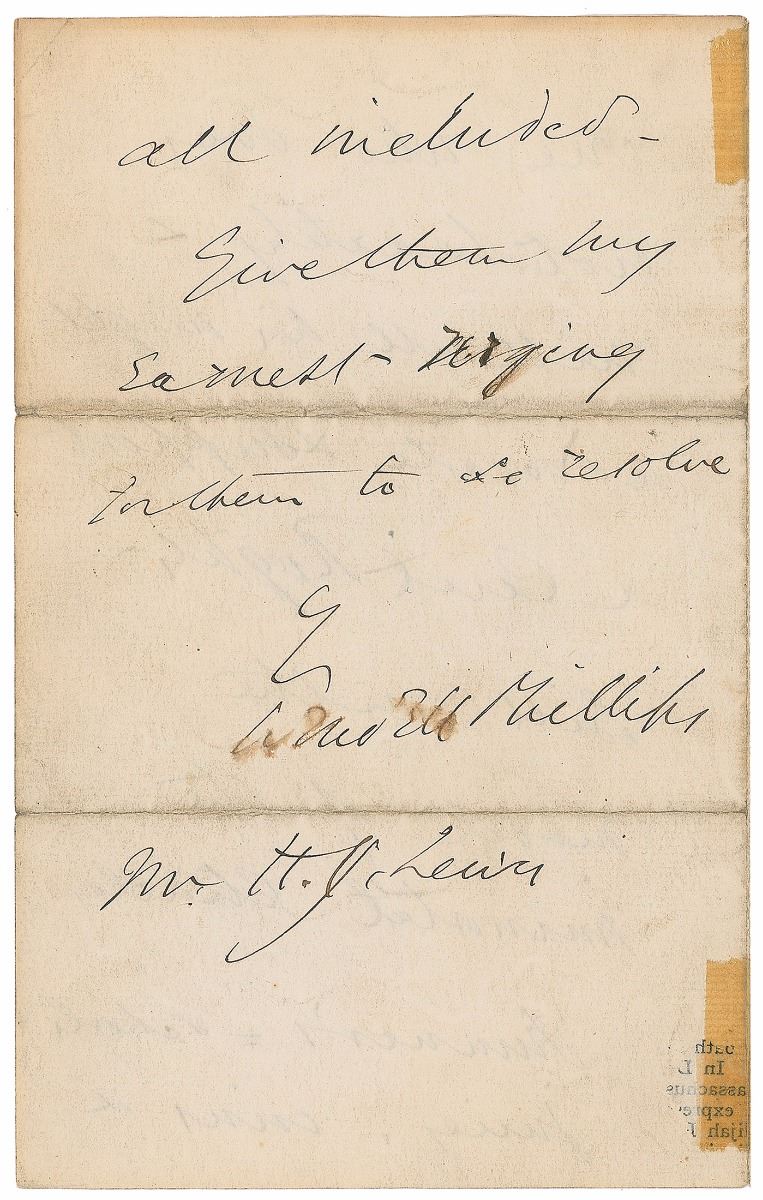 all included -
Give them my
Earnest - urging
for them to so resolve
Y
Wendell Phillips
Mr. H. J. Lewis
oath
In L
assachus
expre
ijah J